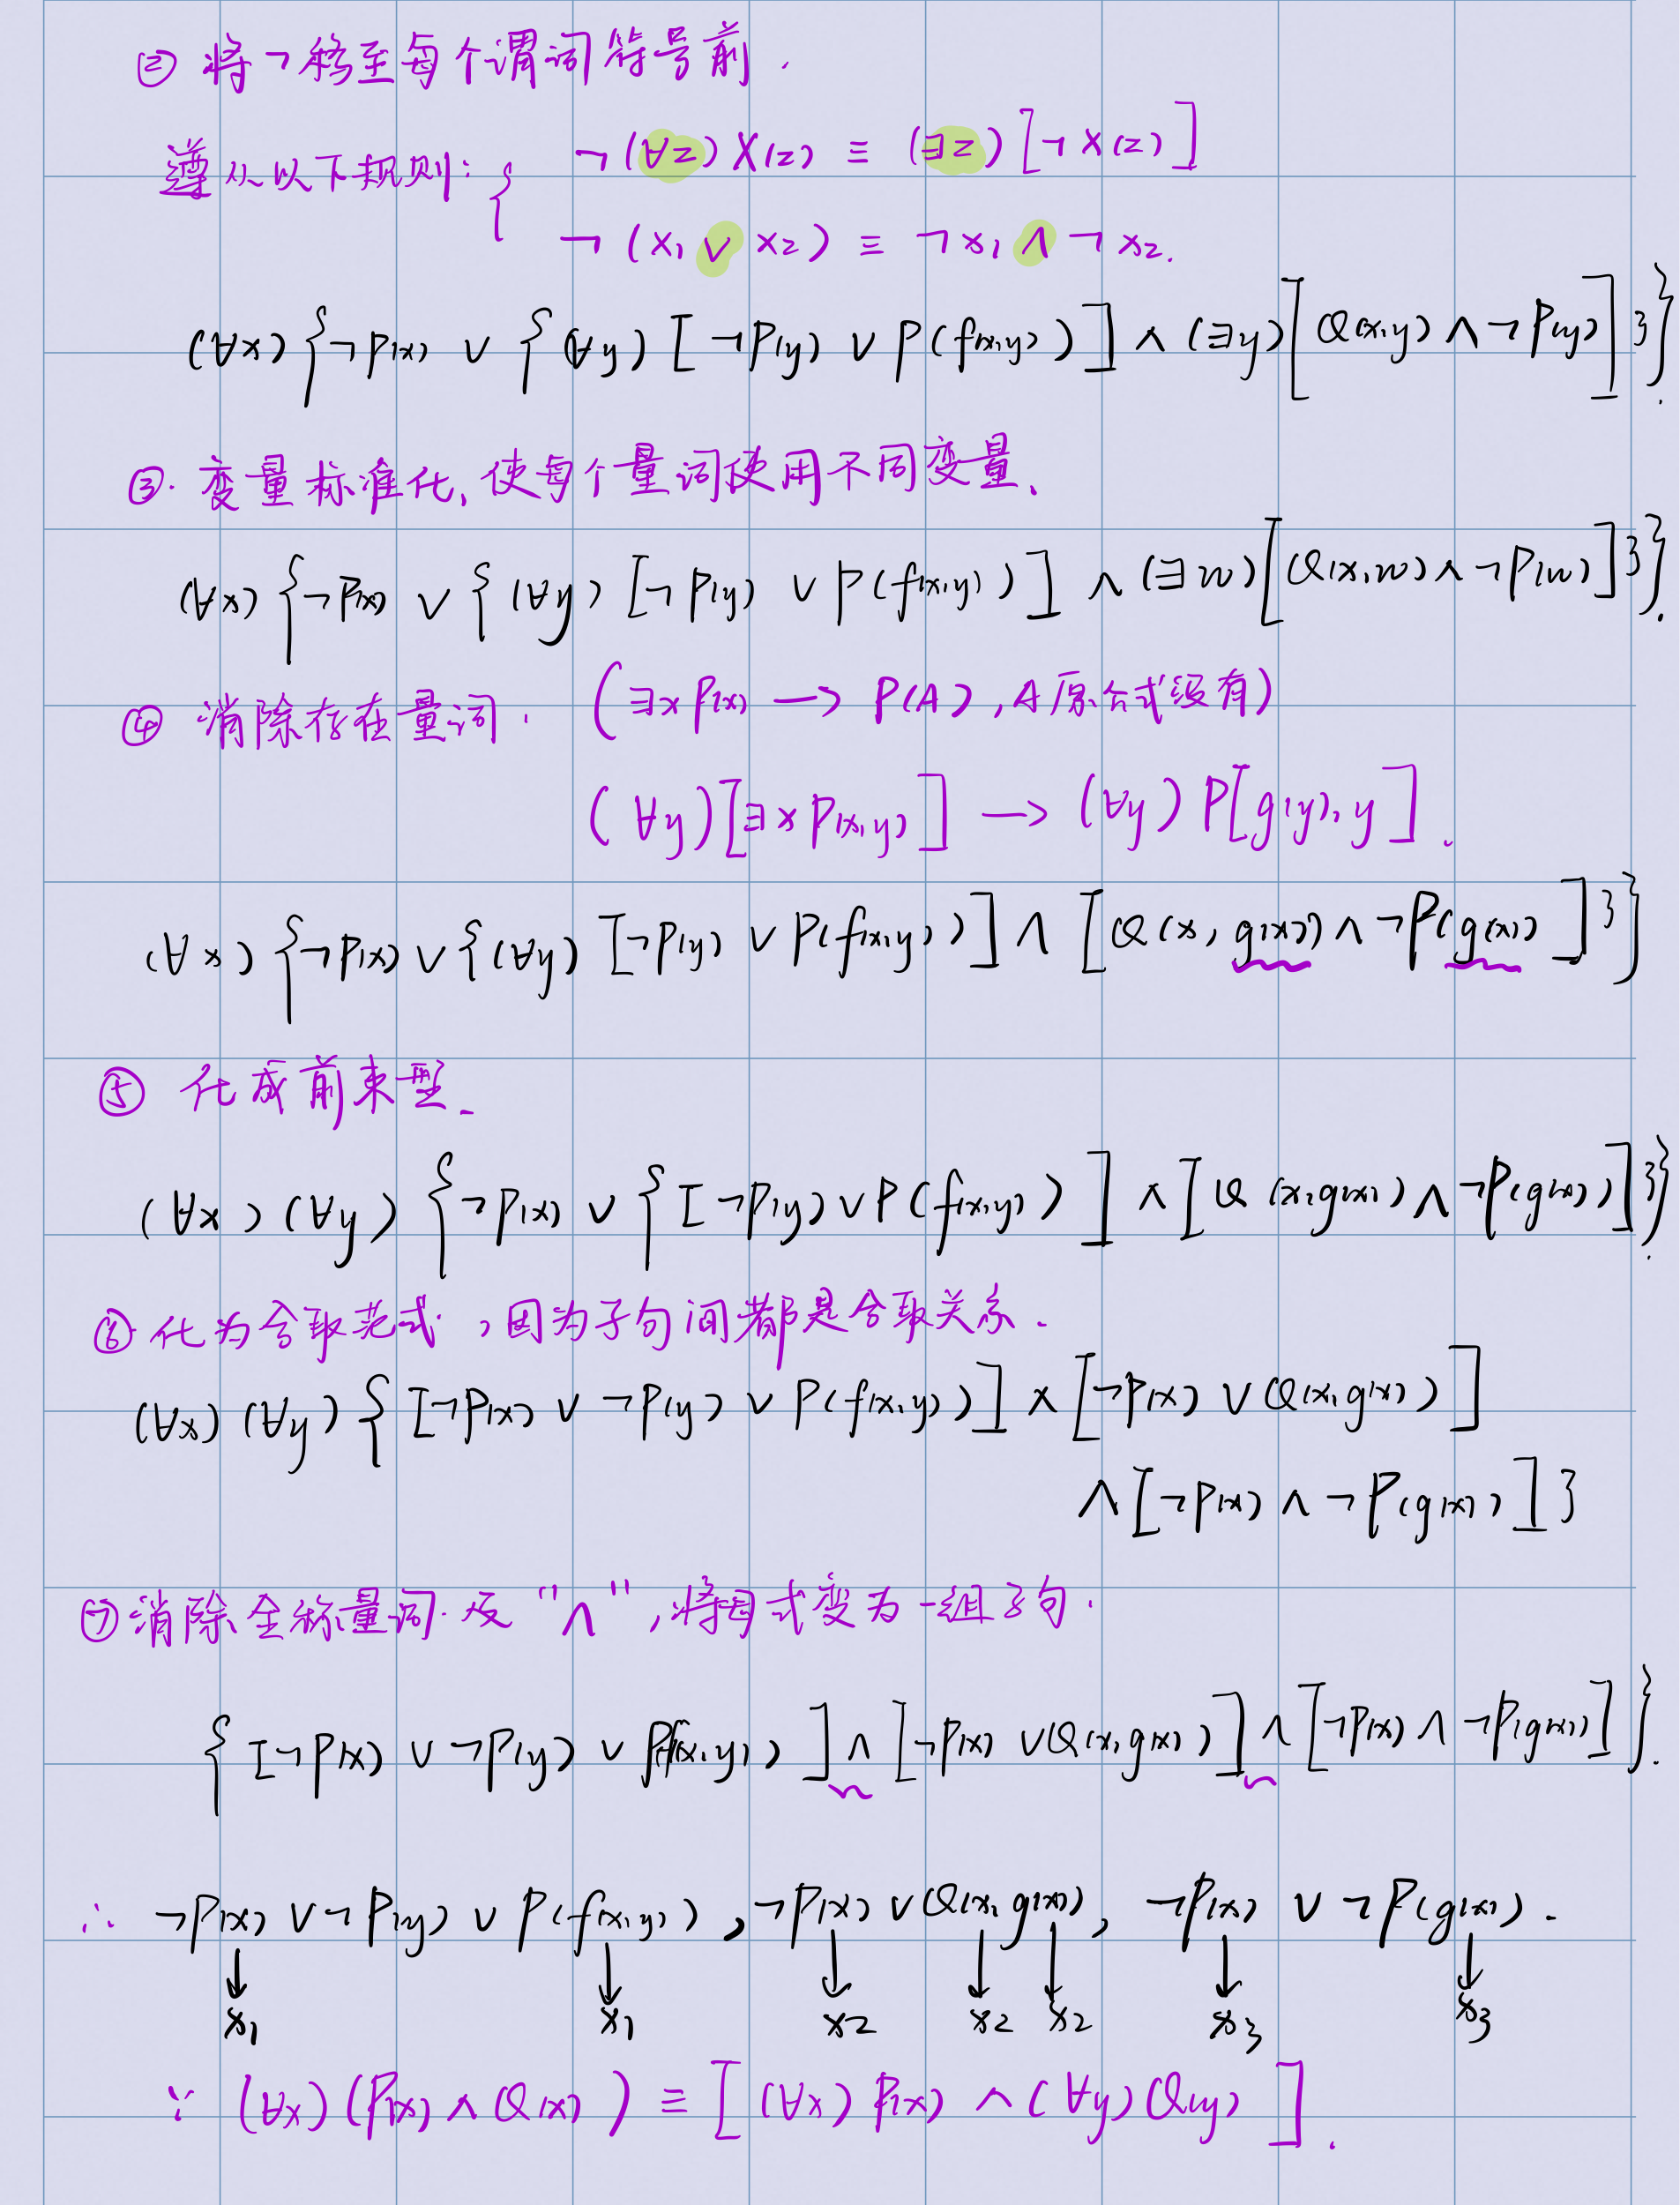 ② 将¬移至每个谓词符号前.
¬(∀z)X(z) ≡ (∃z)[¬X(z)]
遵从以下规则: {
¬(x₁ ∨ x₂) ≡ ¬x₁ ∧ ¬x₂.
(∀x){¬P(x) ∨ {(∀y)[¬P(y) ∨ P(f(x,y))] ∧ (∃y)[Q(x,y) ∧ ¬P(y)]}}.
③. 变量标准化, 使每个量词使用不同变量.
(∀x){¬P(x) ∨ {(∀y)[¬P(y) ∨ P(f(x,y))] ∧ (∃w)[Q(x,w) ∧ ¬P(w)]}}.
④ 消除存在量词. (∃xP(x) → P(A), A原合式没有)
(∀y)[∃xP(x,y)] → (∀y)P[g(y),y].
(∀x){¬P(x) ∨ {(∀y)[¬P(y) ∨ P(f(x,y))] ∧ [Q(x,g(x)) ∧ ¬P(g(x))]}}
⑤ 化成前束型.
(∀x)(∀y){¬P(x) ∨ {[¬P(y) ∨ P(f(x,y))] ∧ [Q(x,g(x)) ∧ ¬P(g(x))]}}.
⑥ 化为合取范式, 因为子句间都是合取关系.
(∀x)(∀y){[¬P(x) ∨ ¬P(y) ∨ P(f(x,y))] ∧ [¬P(x) ∨ Q(x,g(x))]
∧[¬P(x) ∧ ¬P(g(x))]}
⑦消除全称量词.及"∧",将母式变为一组子句.
{[¬P(x) ∨ ¬P(y) ∨ P(f(x,y))] ∧ [¬P(x) ∨ Q(x,g(x))] ∧ [¬P(x) ∧ ¬P(g(x))]}.
∴ ¬P(x) ∨ ¬P(y) ∨ P(f(x,y)), ¬P(x) ∨ Q(x,g(x)), ¬P(x) ∨ ¬P(g(x)).
↓ ↓ ↓ ↓ ↓ ↓ ↓
x₁ x₁ x₂ x₂ x₂ x₃ x₃
∵ (∀x)(P(x) ∧ Q(x)) ≡ [(∀x)P(x) ∧ (∀y)Q(y)].